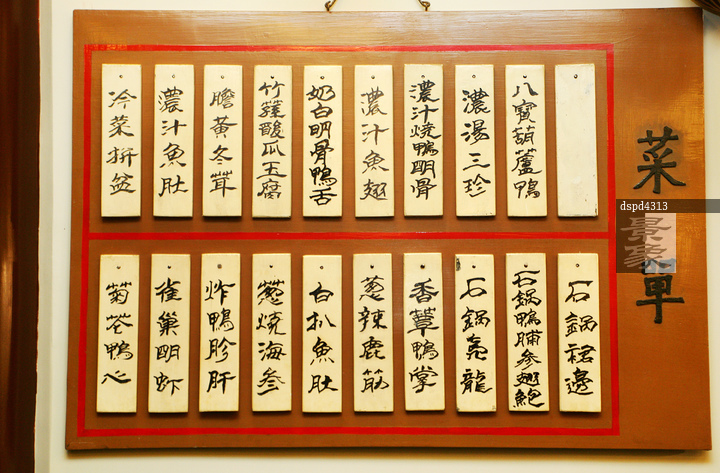 菜單
八寶葫蘆鴨
濃湯三珍
濃汁燒鴨明骨
濃汁魚翅
奶白明骨鴨舌
竹蓀酸瓜玉腐
膽黃冬茸
濃汁魚肚
冷菜拼盆
石鍋裙邊
石鍋鴨脯參翅鮑
石鍋亮龍
香蕈鴨掌
蔥辣鹿筋
白扒魚肚
蔥燒海參
炸鴨胗肝
雀巢明蝦
菊花鴨心
dspd4313
景象